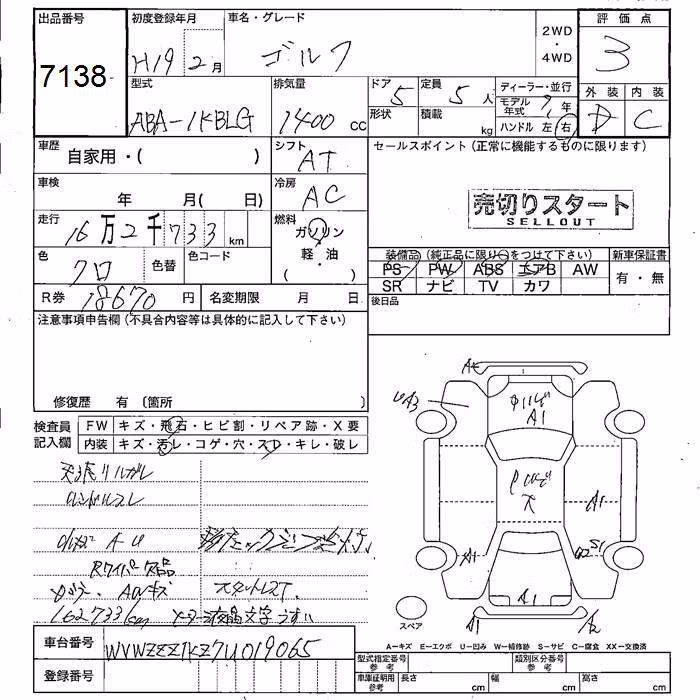 出品番号
7138
初度登録年月
H19 2月
車名・グレード
ゴルフ
2WD・4WD
評価点
3
型式
ABA-1KBLG
排気量
1400cc
ドア
5
形状
定員
5人
積載
kg
ディーラー・並行
モデル年式
年
ハンドル 左 右
外装 内装
D C
車歴
自家用・( )
シフト
AT
セールスポイント (正常に機能するものに限ります)
車検
年 月( 日)
冷房
AC
売切りスタート
SELLOUT
走行
16万2千733km
燃料
ガソリン
・
軽・油
( )
色
クロ
色替
色コード
装備品 (純正品に限り○をつけて下さい)
PS PW ABS エアB AW
SR ナビ TV カワ
新車保証書
有・無
R券
18670円
名変期限 月 日
後日品
注意事項申告欄 (不具合内容等は具体的に記入して下さい)
修復歴 有 (箇所 )
検査員記入欄
FW キズ・飛石・ヒビ割・リペア跡・X要
内装 キズ・汚レ・コゲ・穴・スレ・キレ・破レ
ハンドルスレ
A-U
Rワイパー欠品
AWキズ
スタットレスT.
162733km メーター液晶文字うすい
A1
A1
A1
A1
A1
S1
A1
A2
スペア
A-キズ E-エクボ U-凹み W-補修跡 S-サビ C-腐食 XX-交換済
車台番号
WVWZZZ1KZ7U019065
登録番号
型式指定番号
参考
類別区分番号
参考
車庫証明用
参考
長さ cm
幅 cm
高さ cm